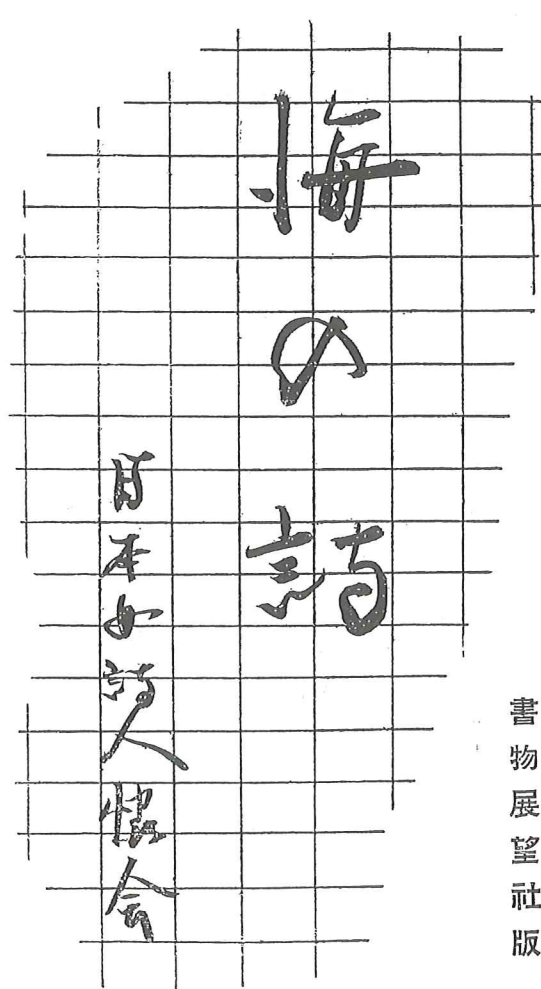 海の詩
日本女詩人協会
書物展望社版